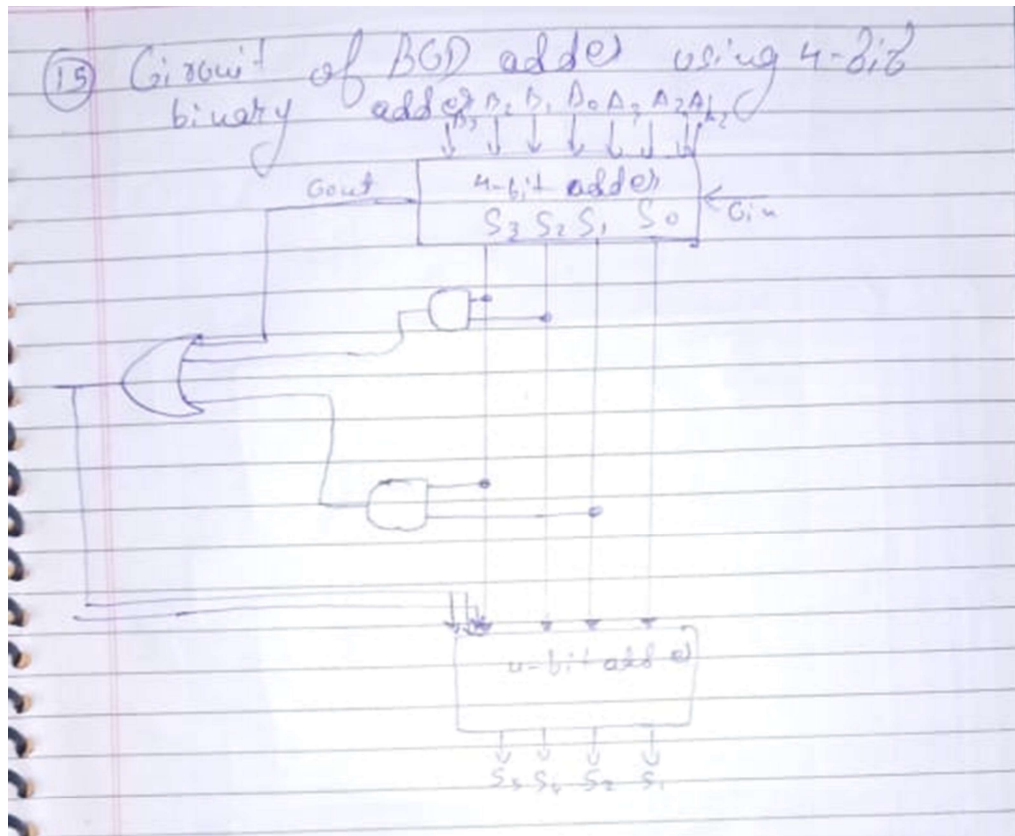 15 Circuit of BCD adder using 4-bit
binary adder
B3 B2 B1 B0 A3 A2 A1
Cout 4-bit adder Cin
S3 S2 S1 S0
4-bit adder
S2 S1